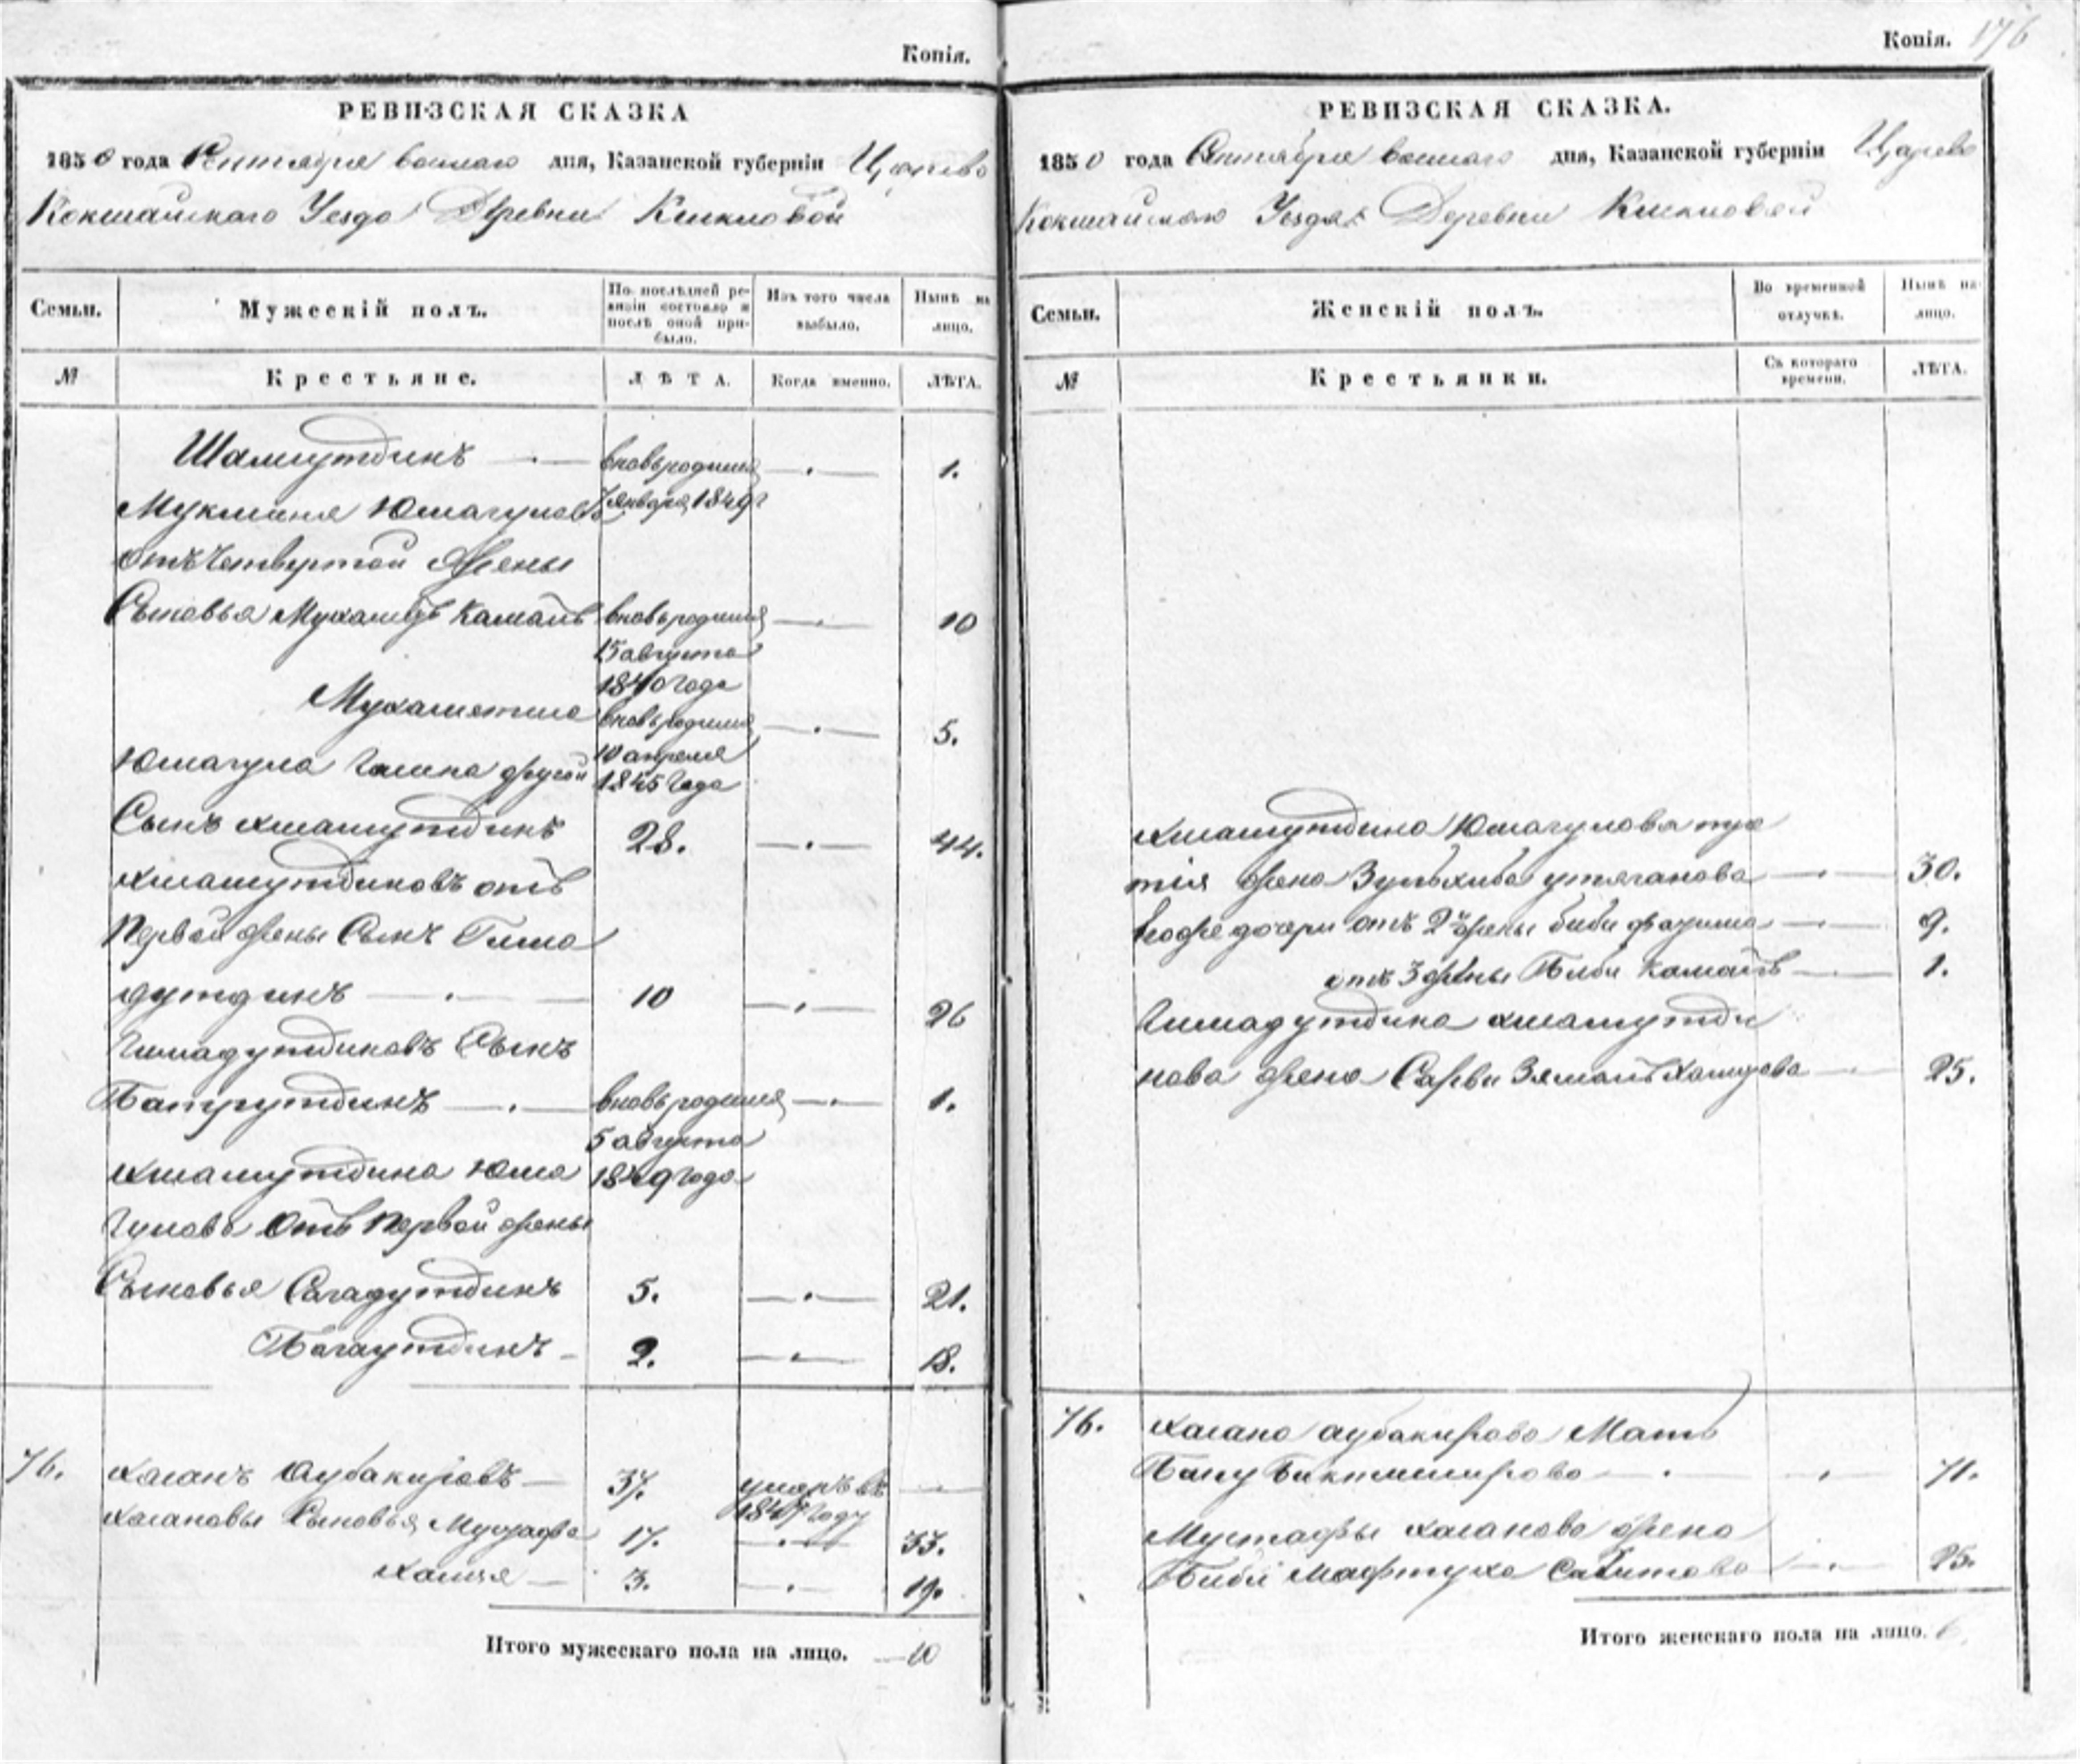 Копія.
РЕВИЗСКАЯ СКАЗКА
1850 года Сентября дня, Казанской губерніи Царево
Кокшайскаго Уезда Деревни
Семьи. Мужескій полъ. По послѣдней ревизіи состояло и послѣ оной прибыло. Изъ того числа выбыло. Нынѣ на лицо.
№ Крестьяне. ЛѢТА. Когда именно. ЛѢТА.
Шамсутдинъ вновьродился 1.
Юмагулова января 1849г
отъ Четвертой Жены
Сыновья Мухаметъ Камалъ вновьродился 10
15 августа
1840 года
вновьродился 5.
Юмагула другой 10 апреля
1845 года
Сынъ Хисамутдинъ 28. 44.
Хисамутдиновъ отъ
Первой жены Сынъ Гима
дутдинъ 10 26
Гимадутдиновъ Сынъ
Батрутдинъ вновьродился 1.
5 августа
Хисамутдина Юма 1849 года
гулова Отъ Первой жены
Сыновья Сагадутдинъ 5. 21.
Багаутдинъ 2. 18.
76. Хасанъ Аубакировъ 37. умеръ въ
1847 году
Хасановы Сыновья Мустафа 17. 33.
3. 19.
Итого мужескаго пола на лицо. 10
Копія. 176
РЕВИЗСКАЯ СКАЗКА.
1850 года Сентября дня, Казанской губерніи Царево
Кокшайскаго Уезда Деревни
Семьи. Женскій полъ. Во временной отлучкѣ. Нынѣ на лицо.
№ Крестьянки. Съ котораго времени. ЛѢТА.
Хисамутдина Юмагулова тре
тія жена 30.
дочери отъ 2й жены Биби 9.
отъ 3 жены Биби Камалъ 1.
Гимадутдина Хисамутди
нова жена Сарви Хамидова 25.
76. Хасана Аубакирова Мать
Бану Бактимирова 71.
Мустафы Хасанова жена
Биби Мафтуха Сабитова 25.
Итого женскаго пола на лицо. 6.